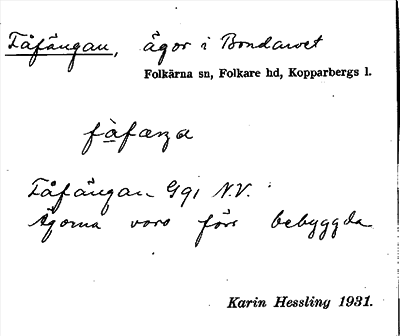 Fåfängan, ägor i Bondarvet
Folkärna sn, Folkare hd, Kopparbergs l.
fåfaŋa
Fåfängan G91 N.V.
Ägorna voro förr bebyggda
Karin Hessling 1931.